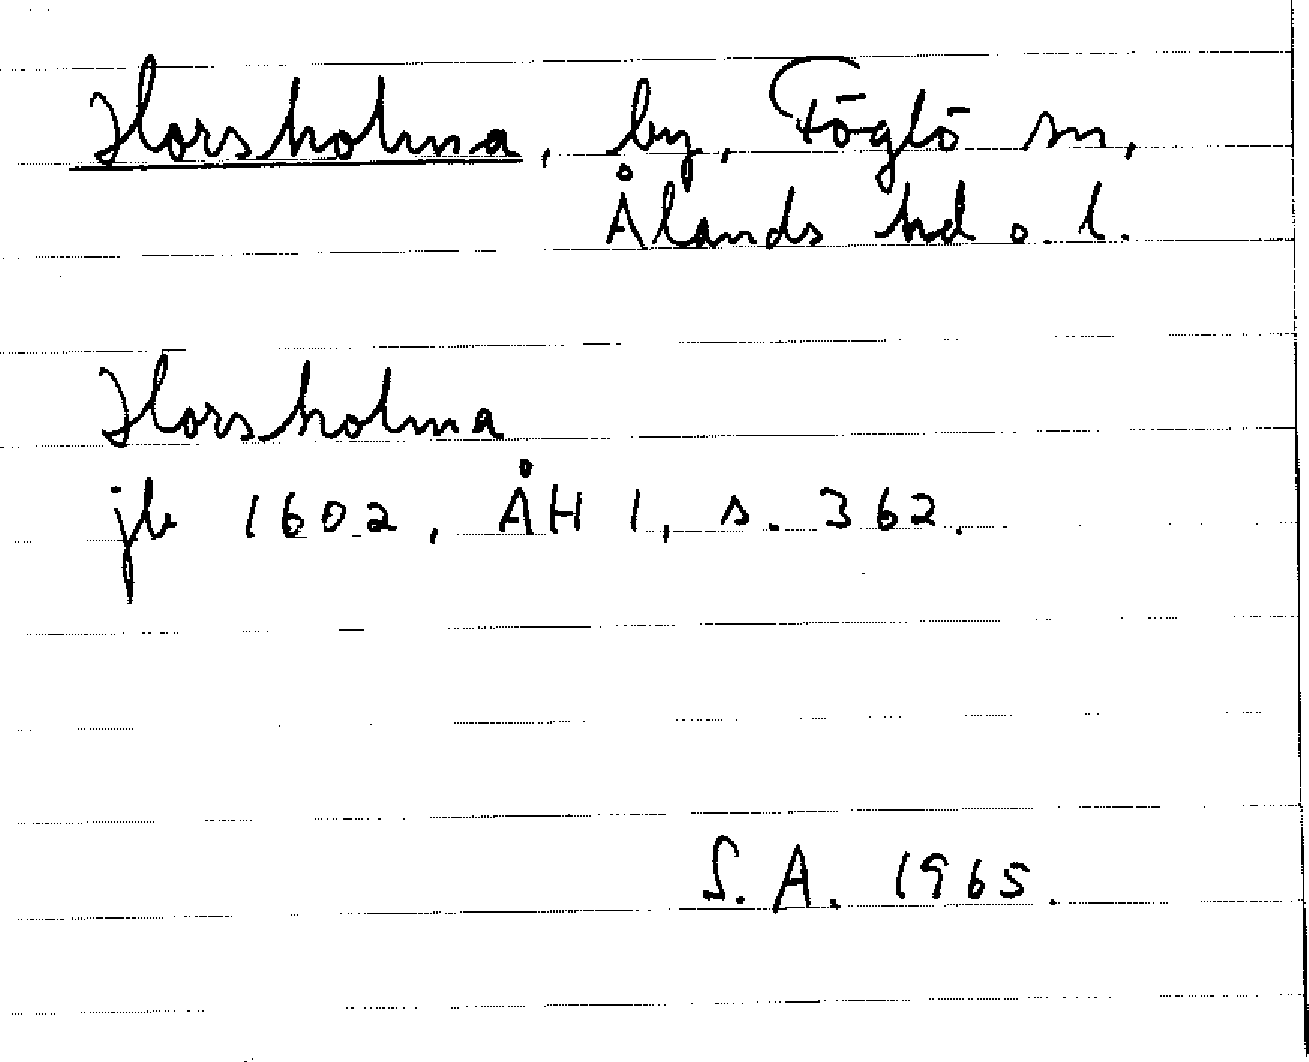 Horsholma, by, Föglö sn,
Ålands hd o. l.
Horsholma
jb 1602, ÅH 1, s. 362.
S. A. 1965.